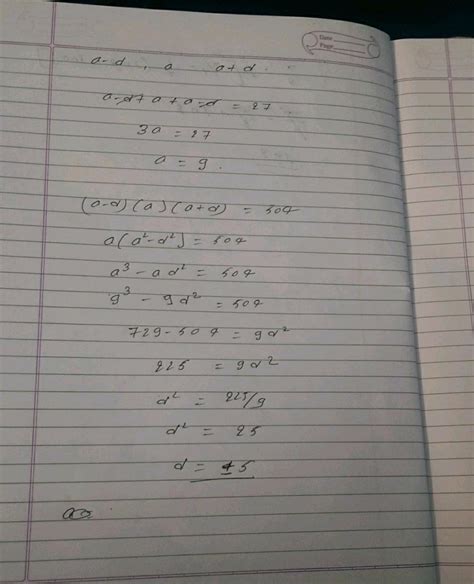 Date
Page
a-d , a a+d.
a-d+a+a-d = 27
3a = 27
a = 9.
(a-d)(a)(a+d) = 504
a(a²-d²) = 504
a³ - ad² = 504
9³ - 9d² = 504
729-504 = 9d²
225 = 9d²
d² = 225/9
d² = 25
d = ±5